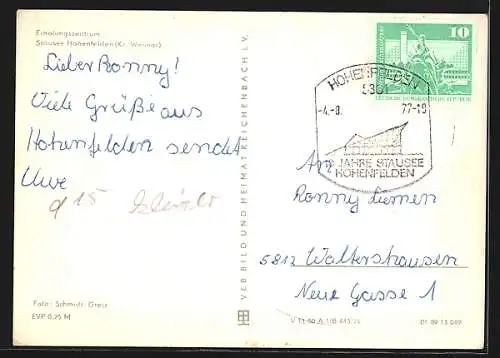 Erholungszentrum
Stausee Hohenfelden (Kr. Weimar)
Lieber Ronny!
Viele Grüße aus
Hohenfelden sendet
Uwe
Foto: Schmidt, Greiz
EVP 0,25 M
VEB BILD UND HEIMAT REICHENBACH I. V.
10
DEUTSCHE DEMOKRATISCHE REPUBLIK
HOHENFELDEN
5301
-4.-8. 77-18
JAHRE STAUSEE
HOHENFELDEN
An
Ronny
5812 Waltershausen
Neue Gasse 1
01 09 13 049